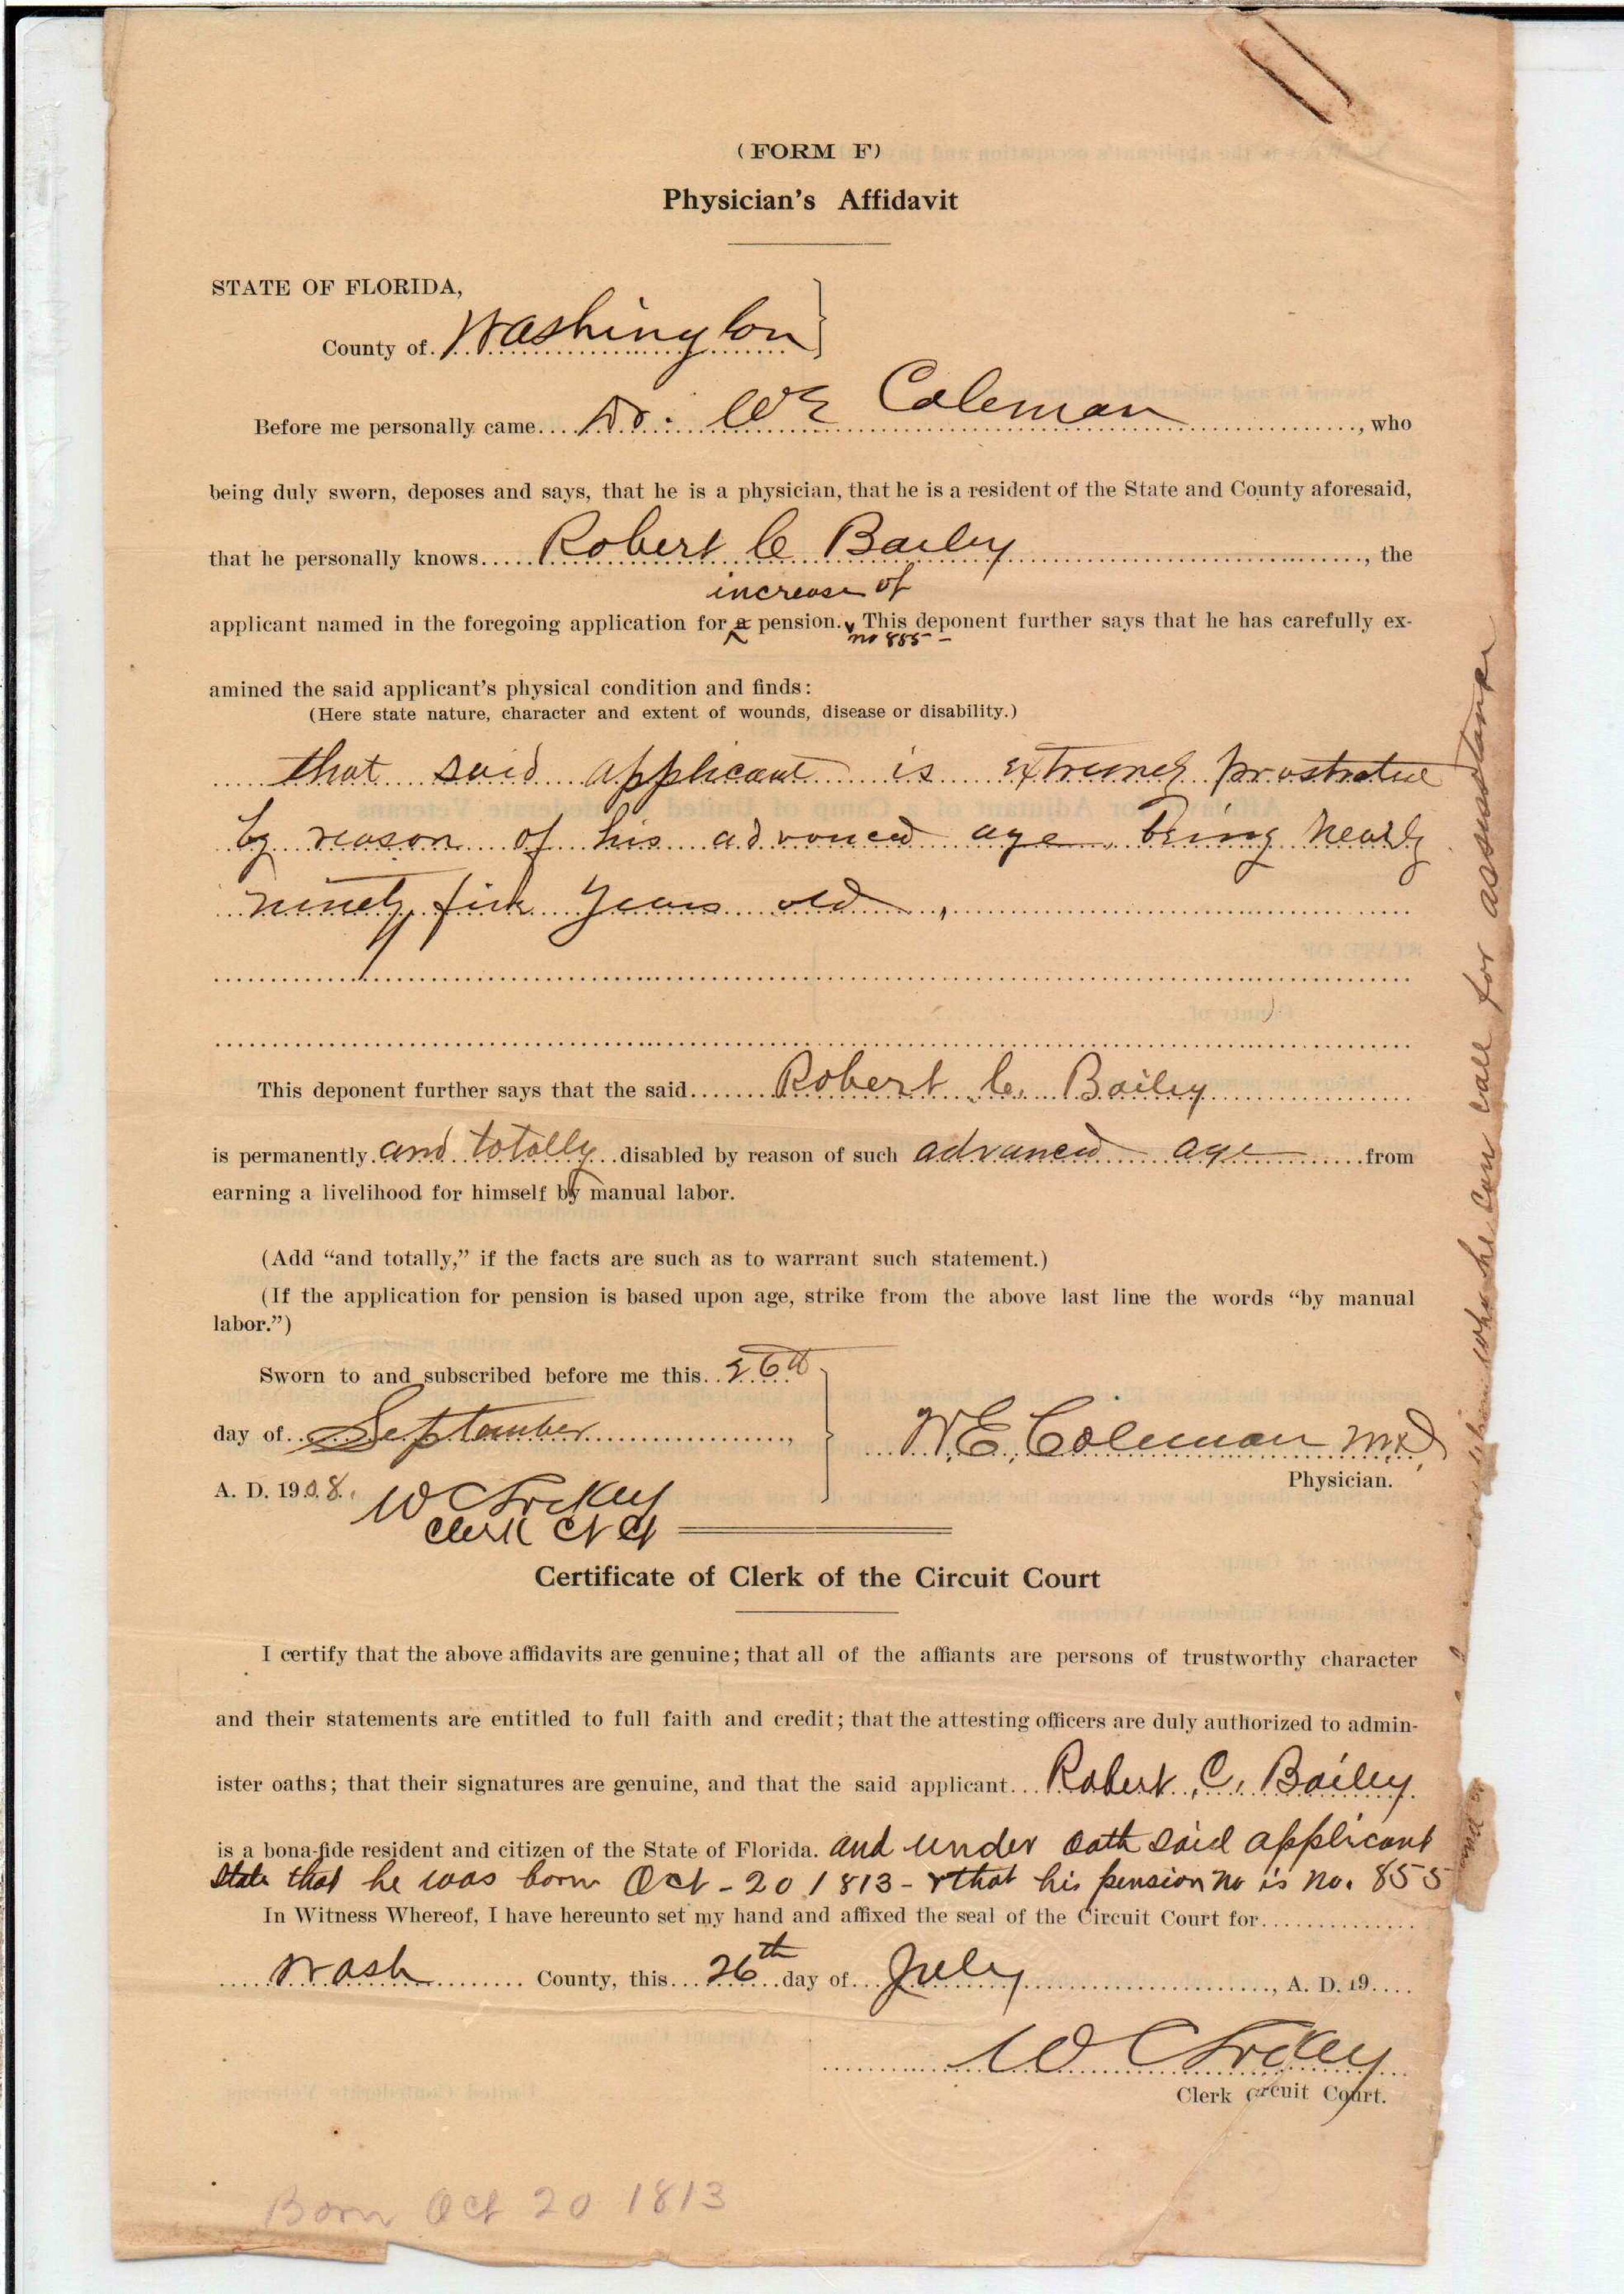 (FORM F)
Physician's Affidavit
STATE OF FLORIDA,
County of Washington
Before me personally came Dr. WE Coleman, who
being duly sworn, deposes and says, that he is a physician, that he is a resident of the State and County aforesaid,
that he personally knows Robert C Bailey, the
increase of
applicant named in the foregoing application for a pension. This deponent further says that he has carefully ex-
no 855 -
amined the said applicant's physical condition and finds:
(Here state nature, character and extent of wounds, disease or disability.)
that said applicant is
by reason of his advanced age, being nearly
ninety five years old,
This deponent further says that the said Robert C. Bailey
is permanently and totally disabled by reason of such advanced age from
earning a livelihood for himself by manual labor.
(Add "and totally," if the facts are such as to warrant such statement.)
(If the application for pension is based upon age, strike from the above last line the words "by manual
labor.")
Sworn to and subscribed before me this 26th
day of September,
A. D. 1908.
W.E. Coleman M.D.
Physician.
W C Lockey
Clerk Ct Ct
Certificate of Clerk of the Circuit Court
I certify that the above affidavits are genuine; that all of the affiants are persons of trustworthy character
and their statements are entitled to full faith and credit; that the attesting officers are duly authorized to admin-
ister oaths; that their signatures are genuine, and that the said applicant Robert C. Bailey
is a bona-fide resident and citizen of the State of Florida. and under oath said applicant
state that he was born Oct - 20 1813 - & that his pension no is no. 855
In Witness Whereof, I have hereunto set my hand and affixed the seal of the Circuit Court for
Wash County, this 26th day of July, A. D. 19
W C Lockey
Clerk Circuit Court.
Born Oct 20 1813
whom he can call for assistance